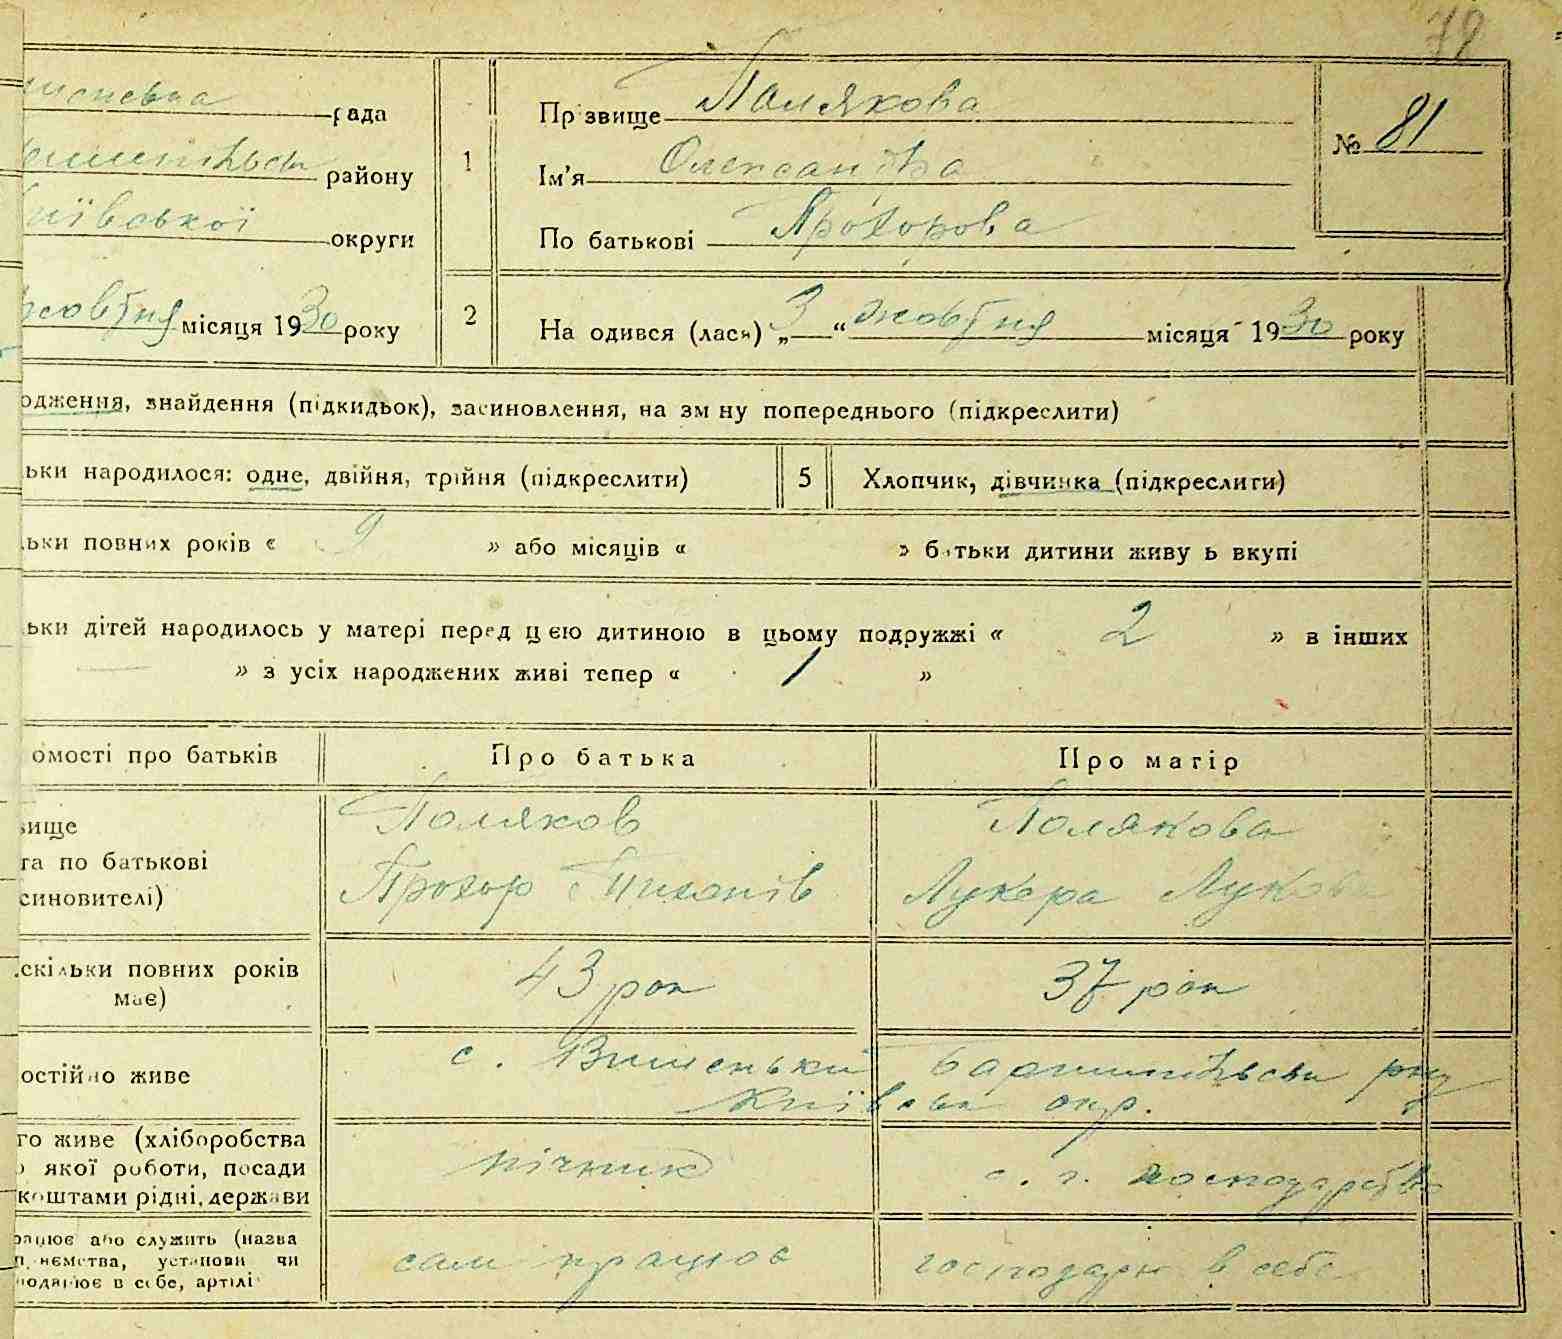 79
рада
району
Київської округи
жовтня місяця 1930 року
1
Прізвище Полякова
Ім'я Олександра
По батькові Прохорова
№ 81
2
На одився (лася) „3“ жовтня місяця 1930 року
одження, знайдення (підкидьок), засиновлення, на зм ну попереднього (підкреслити)
льки народилося: одне, двійня, трійня (підкреслити)
5
Хлопчик, дівчинка (підкреслити)
льки повних років « 9 » або місяців « » батьки дитини живу ь вкупі
льки дітей народилось у матері перед цією дитиною в цьому подружжі « 2 » в інших
— » з усіх народжених живі тепер « 1 »
омості про батьків
Про батька
Про матір
вище
та по батькові
синовителі)
Поляков
Прохор Тихонів
Полякова
Лукера Лукова
скільки повних років
має)
43 рок
37 рок
остійно живе
с. Вишеньки Баришпільськ р-ну
Київськ окр.
го живе (хліборобства
якої роботи, посади
коштами рідні, держави
пічник
с. г. господарство
рацює або служить (назва
п. ємства, установи чи
подарює в себе, артілі
сам працює
господарює в себе